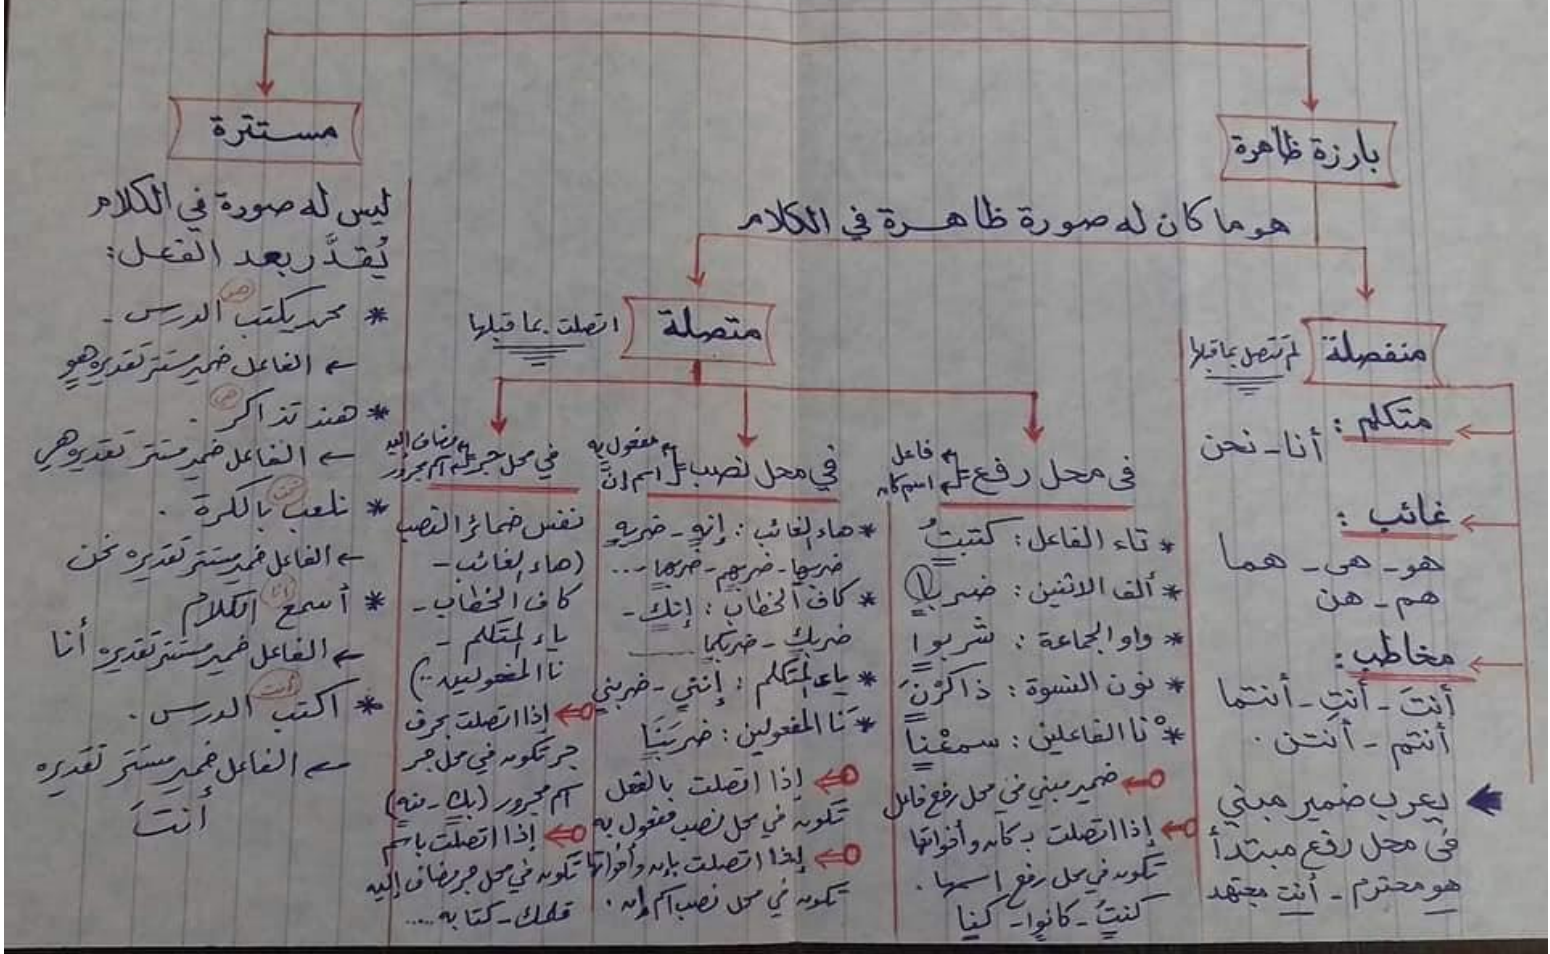 بارزة ظاهرة
هو ما كان له صورة ظاهرة في الكلام
منفصلة
لم تتصل بما قبلها
متكلم :
أنا - نحن
غائب :
هو - هي - هما
هم - هن
مخاطب :
أنتَ - أنتِ - أنتما
أنتم - أنتن .
يعرب ضمير مبني
في محل رفع مبتدأ
هو محترم - أنت مجتهد
متصلة
اتصلت بما قبلها
في محل رفع
فاعل
اسم كان
* تاء الفاعل : كتبتُ
* ألف الاثنين : ضربا
* واو الجماعة : شربوا
* نون النسوة : ذاكرْنَ
* نا الفاعلين : سمعْنا
ضمير مبني في محل رفع فاعل
إذا اتصلت بـ كان وأخواتها
تكون في محل رفع اسمها .
كنتُ - كانوا - كنا
في محل نصب
مفعول به
اسم إنَّ
* هاء الغائب : إنه - ضربه
ضربها - ضربهم - ضربهما ...
* كاف الخطاب : إنك -
ضربك - ضربكما
* ياء المتكلم : إنني - ضربني
* نا المفعولين : ضربَنَا
إذا اتصلت بالفعل
تكون في محل نصب مفعول به
إذا اتصلت بإن وأخواتها
تكون في محل نصب اسم إن .
في محل جر
مضاف إليه
اسم مجرور
نفس ضمائر النصب
(هاء الغائب -
كاف الخطاب -
ياء المتكلم -
نا المفعولين ..)
إذا اتصلت بحرف
جر تكون في محل جر
اسم مجرور (بك - منه)
إذا اتصلت باسم
تكون في محل جر مضاف إليه
قلمك - كتابه ....
مستترة
ليس له صورة في الكلام
يُقدَّر بعد الفعل :
* محمد يكتب الدرس -
هو
← الفاعل ضمير مستتر تقديره هو
* هند تذاكر .
هي
← الفاعل ضمير مستتر تقديره هي
* نلعب بالكرة .
نحن
← الفاعل ضمير مستتر تقديره نحن
* أسمع الكلام
أنا
← الفاعل ضمير مستتر تقديره أنا
* اكتب الدرس .
أنت
← الفاعل ضمير مستتر تقديره
أنتَ